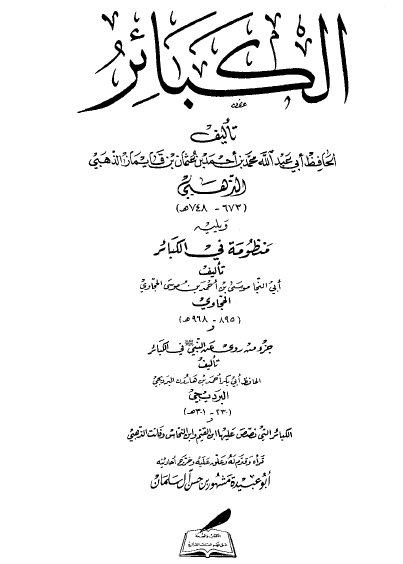 الكبائر
تأليف
الحافظ أبي عبد الله محمد بن أحمد بن عثمان بن قايماز الذهبي
الذهبي
(٦٧٣ - ٧٤٨هـ)
ويليه
منظومة في الكبائر
تأليف
أبي النجا موسى بن أحمد بن موسى الحجاوي
الحجاوي
(٨٩٥ - ٩٦٨هـ)
و
جزء من روى عن النبي ﷺ في الكبائر
تأليف
الحافظ أبي بكر أحمد بن هارون البرديجي
البرديجي
(٢٣٠ - ٣٠١هـ)
و
الكبائر التي نصص عليها ابن القيم وابن النحاس وفاتت الذهبي
قرأه وقدم له وعلق عليه وخرج أحاديثه
أبو عبيدة مشهور بن حسن آل سلمان